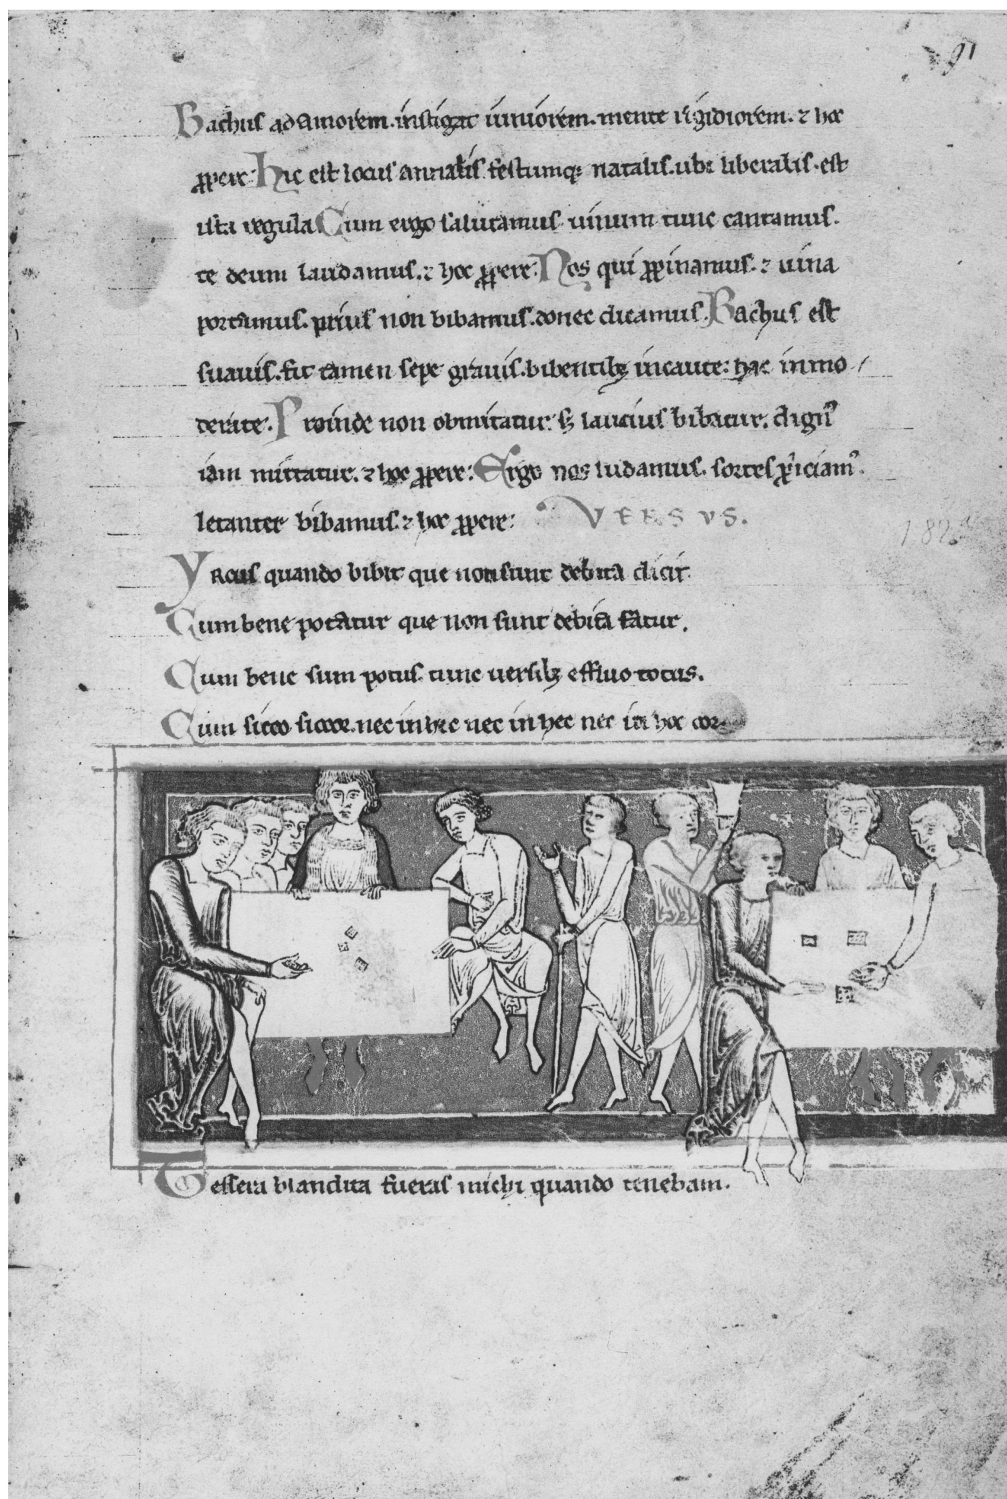 91
Bachus ad amorem. instigat iuniorem. mente rigidiorem. ⁊ hoc
ꝓpere. Hic est locus annalis. festumq; natalis. ubi liberalis. est
ista regula Cum ergo salutamus uinum tunc cantamus.
te deum laudamus. ⁊ hoc ꝓpere. Nos qui ꝓpinamus. ⁊ uina
portamus. prius non bibamus. donec dicamus. Bachus est
suauis. fit tamen sepe grauis. bibentibꝫ incaute. hac inmo
derate. Proinde non obmitatur. sꝫ laucius bibatur.
iam mittatur. ⁊ hoc ꝓpere. Ergo nos ludamus. sortes
letanter bibamus. ⁊ hoc ꝓpere. VERSUS.
Yrcus quando bibit que non sunt debita dicit.
Cum bene potatur que non sunt debita fatur.
Cum bene sum potus. tunc uersibꝫ effluo totus.
Cum sicco siccor. nec in hec nec in hec nec in hoc cor
Tessera blandita fueras michi quando tenebam.